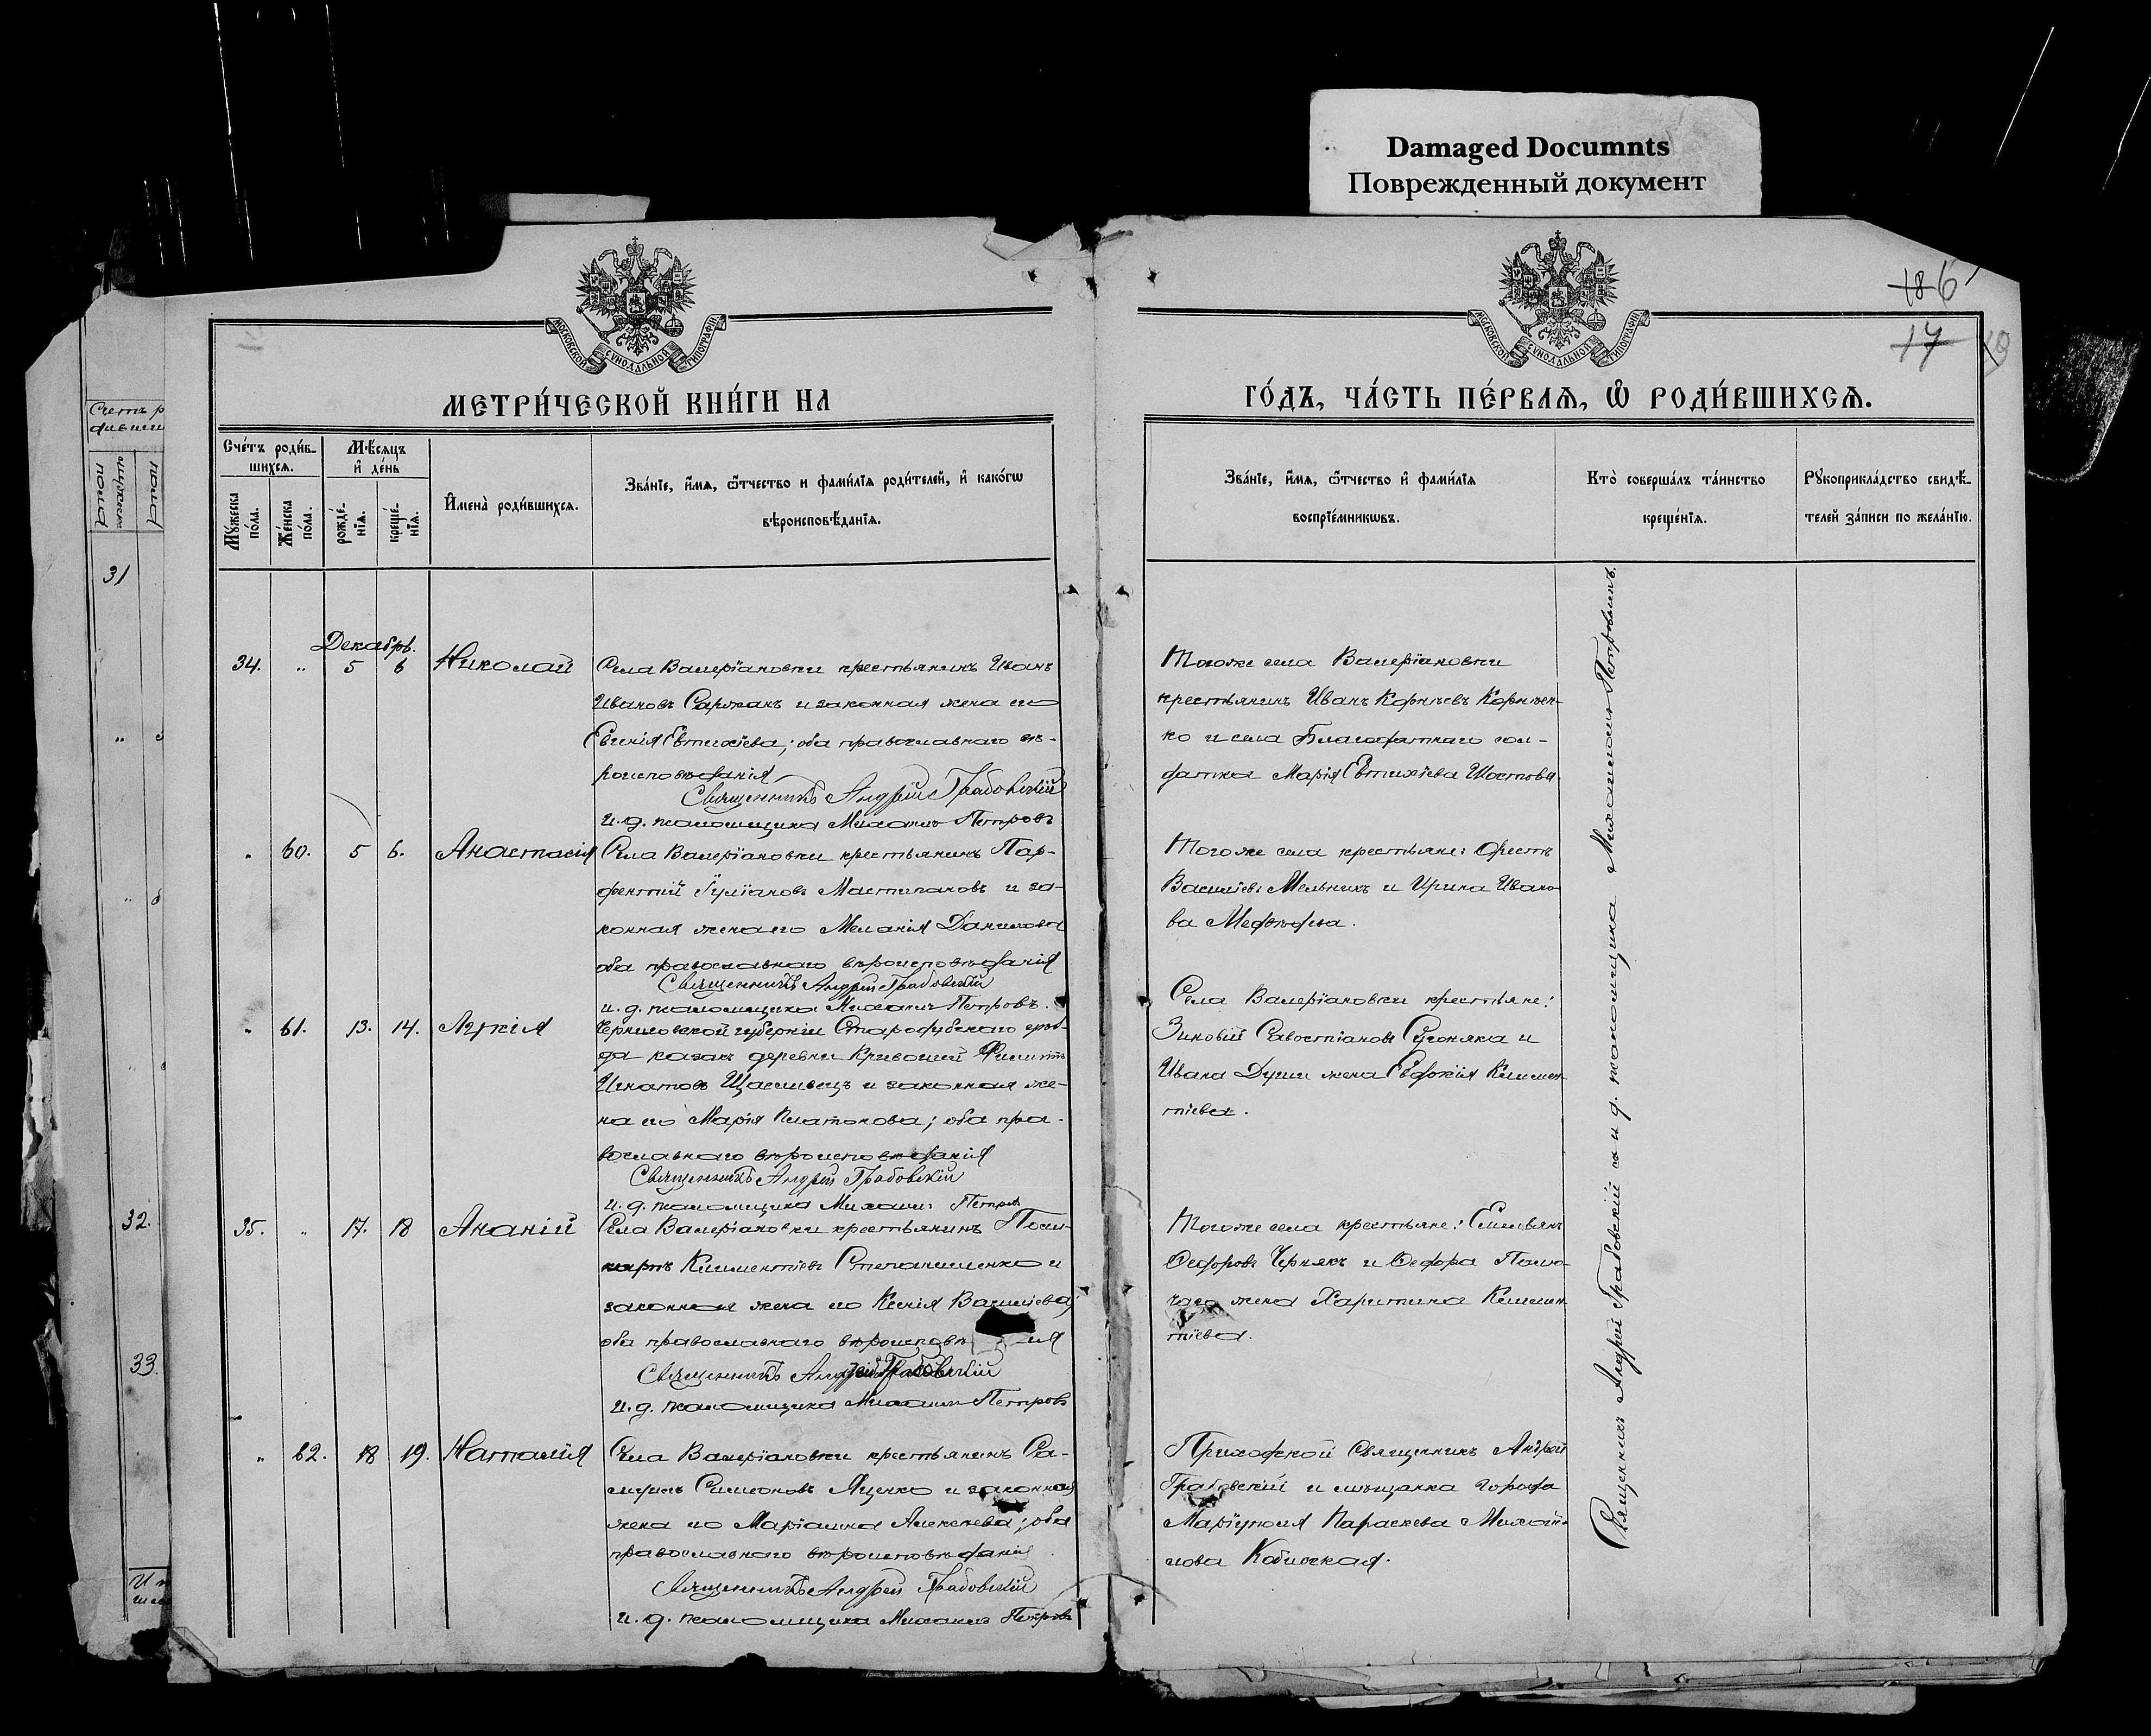 Damaged Documnts
Поврежденный документ
МОСКОВСКОЙ СѴНОДАЛЬНОЙ ТИПОГРАФІИ
МЕТРИ́ЧЕСКОЙ КНИ́ГИ НА
Сче́тъ роди́в-
шихсѧ.
Мѣ́сѧцъ
и҆ де́нь
Мꙋ́жеска
по́ла.
Же́нска
по́ла.
рожде́-
нїѧ.
креще́-
нїѧ.
И҆мена̀ роди́вшихсѧ.
Зва́нїе, и҆́мѧ, ѻ҆́тчество и фами́лїѧ роди́телей, и҆ како́гѡ
вѣроисповѣ́данїѧ.
Декабрь.
34. „ 5 6 Николай
Села Валеріановки крестьянинъ Иванъ
Ивановъ Саржанъ и законная жена его
Евгенія Евтихіева; оба православнаго вѣ-
роисповѣданія
Священникъ Андрей Грабовскій
И. д. псаломщика Михаилъ Петровъ
„ 60. 5 6. Анастасія
Села Валеріановки крестьянинъ Пар-
фентій Іуліановъ и за-
конная жена его Меланія Данилова
оба православнаго вѣроисповѣданія
Священникъ Андрей Грабовскій
и. д. псаломщика Михаилъ Петровъ.
„ 61. 13. 14. Лукія
Черниговской губерніи Стародубскаго уѣз-
да казакъ деревни Кривошеи Филиппъ
Игнатовъ Щасливецъ и законная же-
на его Марія Платонова; оба пра-
вославнаго вѣроисповѣданія
Священникъ Андрей Грабовскій
И. д. псаломщика Михаилъ Петровъ
35. „ 17. 18 Ананій
Села Валеріановки крестьянинъ Поли-
карпъ Климентіевъ Степаниленко и
законная жена его Ксенія Василіева;
оба православнаго вѣроисповѣ ія
Священникъ Андрей Грабовскій
И. д. псаломщика Михаилъ Петровъ
„ 62. 18 19. Наталія
Села Валеріановки крестьянинъ Са-
муилъ Симеоновъ Яценко и законная
жена его Маріанна Алексеева; оба
православнаго вѣроисповѣданія
Священникъ Андрей Грабовскій
И. д. псаломщика Михаилъ Петровъ
18 6
17
МОСКОВСКОЙ СѴНОДАЛЬНОЙ ТИПОГРАФІИ
ГО́ДЪ, ЧА́СТЬ ПЕ́РВАѦ, Ѽ РОДИ́ВШИХСѦ.
Зва́нїе, и҆́мѧ, ѻ҆́тчество и҆ фами́лїѧ
воспрїе́мникѡвъ.
Кто̀ соверша́лъ та́инство
креще́нїѧ.
Рꙋкоприкла́дство свидѣ́-
телей за́писи по жела́нїю.
Тогоже села Валеріановки
крестьянинъ Иванъ Корнѣевъ Корніен-
ко и села Благодатнаго сол-
датка Марія Евтихіева Шостова
Тогоже села крестьяне: Орестъ
Василіевъ Мельникъ и Ирина Ивано-
ва Мефодьева.
Села Валеріановки крестьяне:
Зиновій Савостіановъ Сугоняка и
Ивана Души жена Евдокія Климен-
тіева.
Тогоже села крестьяне: Емельянъ
Ѳедоровъ Чернякъ и Ѳедора
жена Харитина Климен-
тіева.
Приходской Священникъ Андрей
Грабовскій и мѣщанка города
Маріуполя Параскева Михай-
лова Кобилская.
Священникъ Андрей Грабовскій съ и. д. псаломщика Михаиломъ Петровымъ.
Счетъ р
дивши
мужеск
пола
пола
31
32.
33.